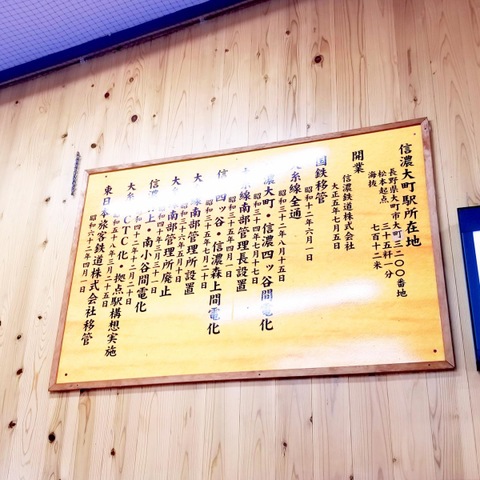 信濃大町駅所在地
長野県大町市大町三二〇〇番地
松本起点 三十五粁一分
海抜 七百十二米
開業
信濃鉄道株式会社
大正五年七月五日
国鉄移管
昭和十二年六月一日
糸線全通
昭和三十二年八月十五日
濃大町・信濃四ッ谷間電化
昭和三十四年七月十七日
糸線南部管理長設置
昭和三十五年四月一日
信 四ッ谷・信濃森上間電化
三十五年七月二十日
大 線南部管理所設置
昭和三十六年五月十日
大 南部管理所廃止
四十年三月三十一日
信濃 上・南小谷間電化
四十二年十二月二十日
大糸 CTC化 拠点駅構想実施
五十八年三月二十五日
東日本旅客鉄道株式会社移管
昭和六十二年四月一日